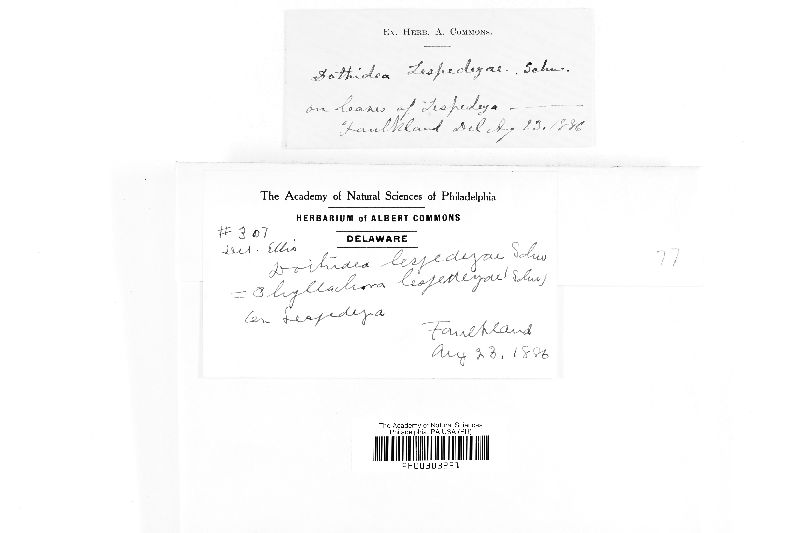 Ex. Herb. A. Commons.
Dothidea Lespedezae. Schw.
on leaves of Lespedeza.
Faulkland Del Aug 23, 1886
The Academy of Natural Sciences of Philadelphia
HERBARIUM of ALBERT COMMONS
DELAWARE
# 307
det. Ellis
Dothidea lespedezae Schw
= Phyllachora lespedezae (Schw)
on Lespedeza
Faulkland
Aug 23, 1886
77
The Academy of Natural Sciences
Philadelphia, PA USA (PH)